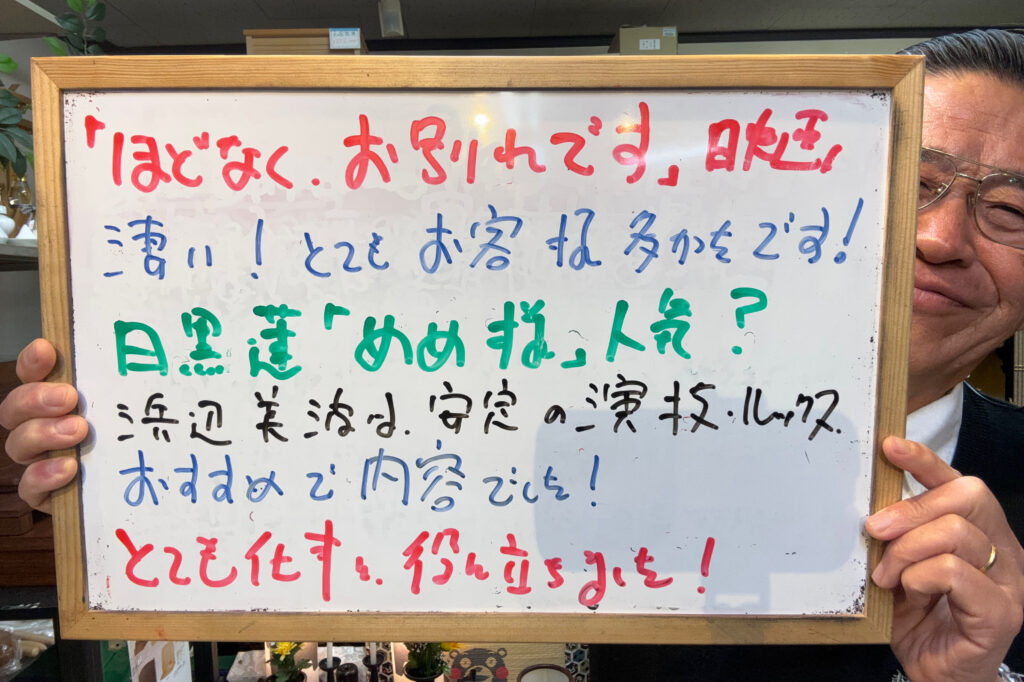 「ほどなく、お別れです」映画
凄い！とてもお客様多かったです！
目黒蓮「めめ様」人気？
浜辺美波は、安定の演技・ルックス
おすすめで内容でした！
とても仕事に役に立ちました！